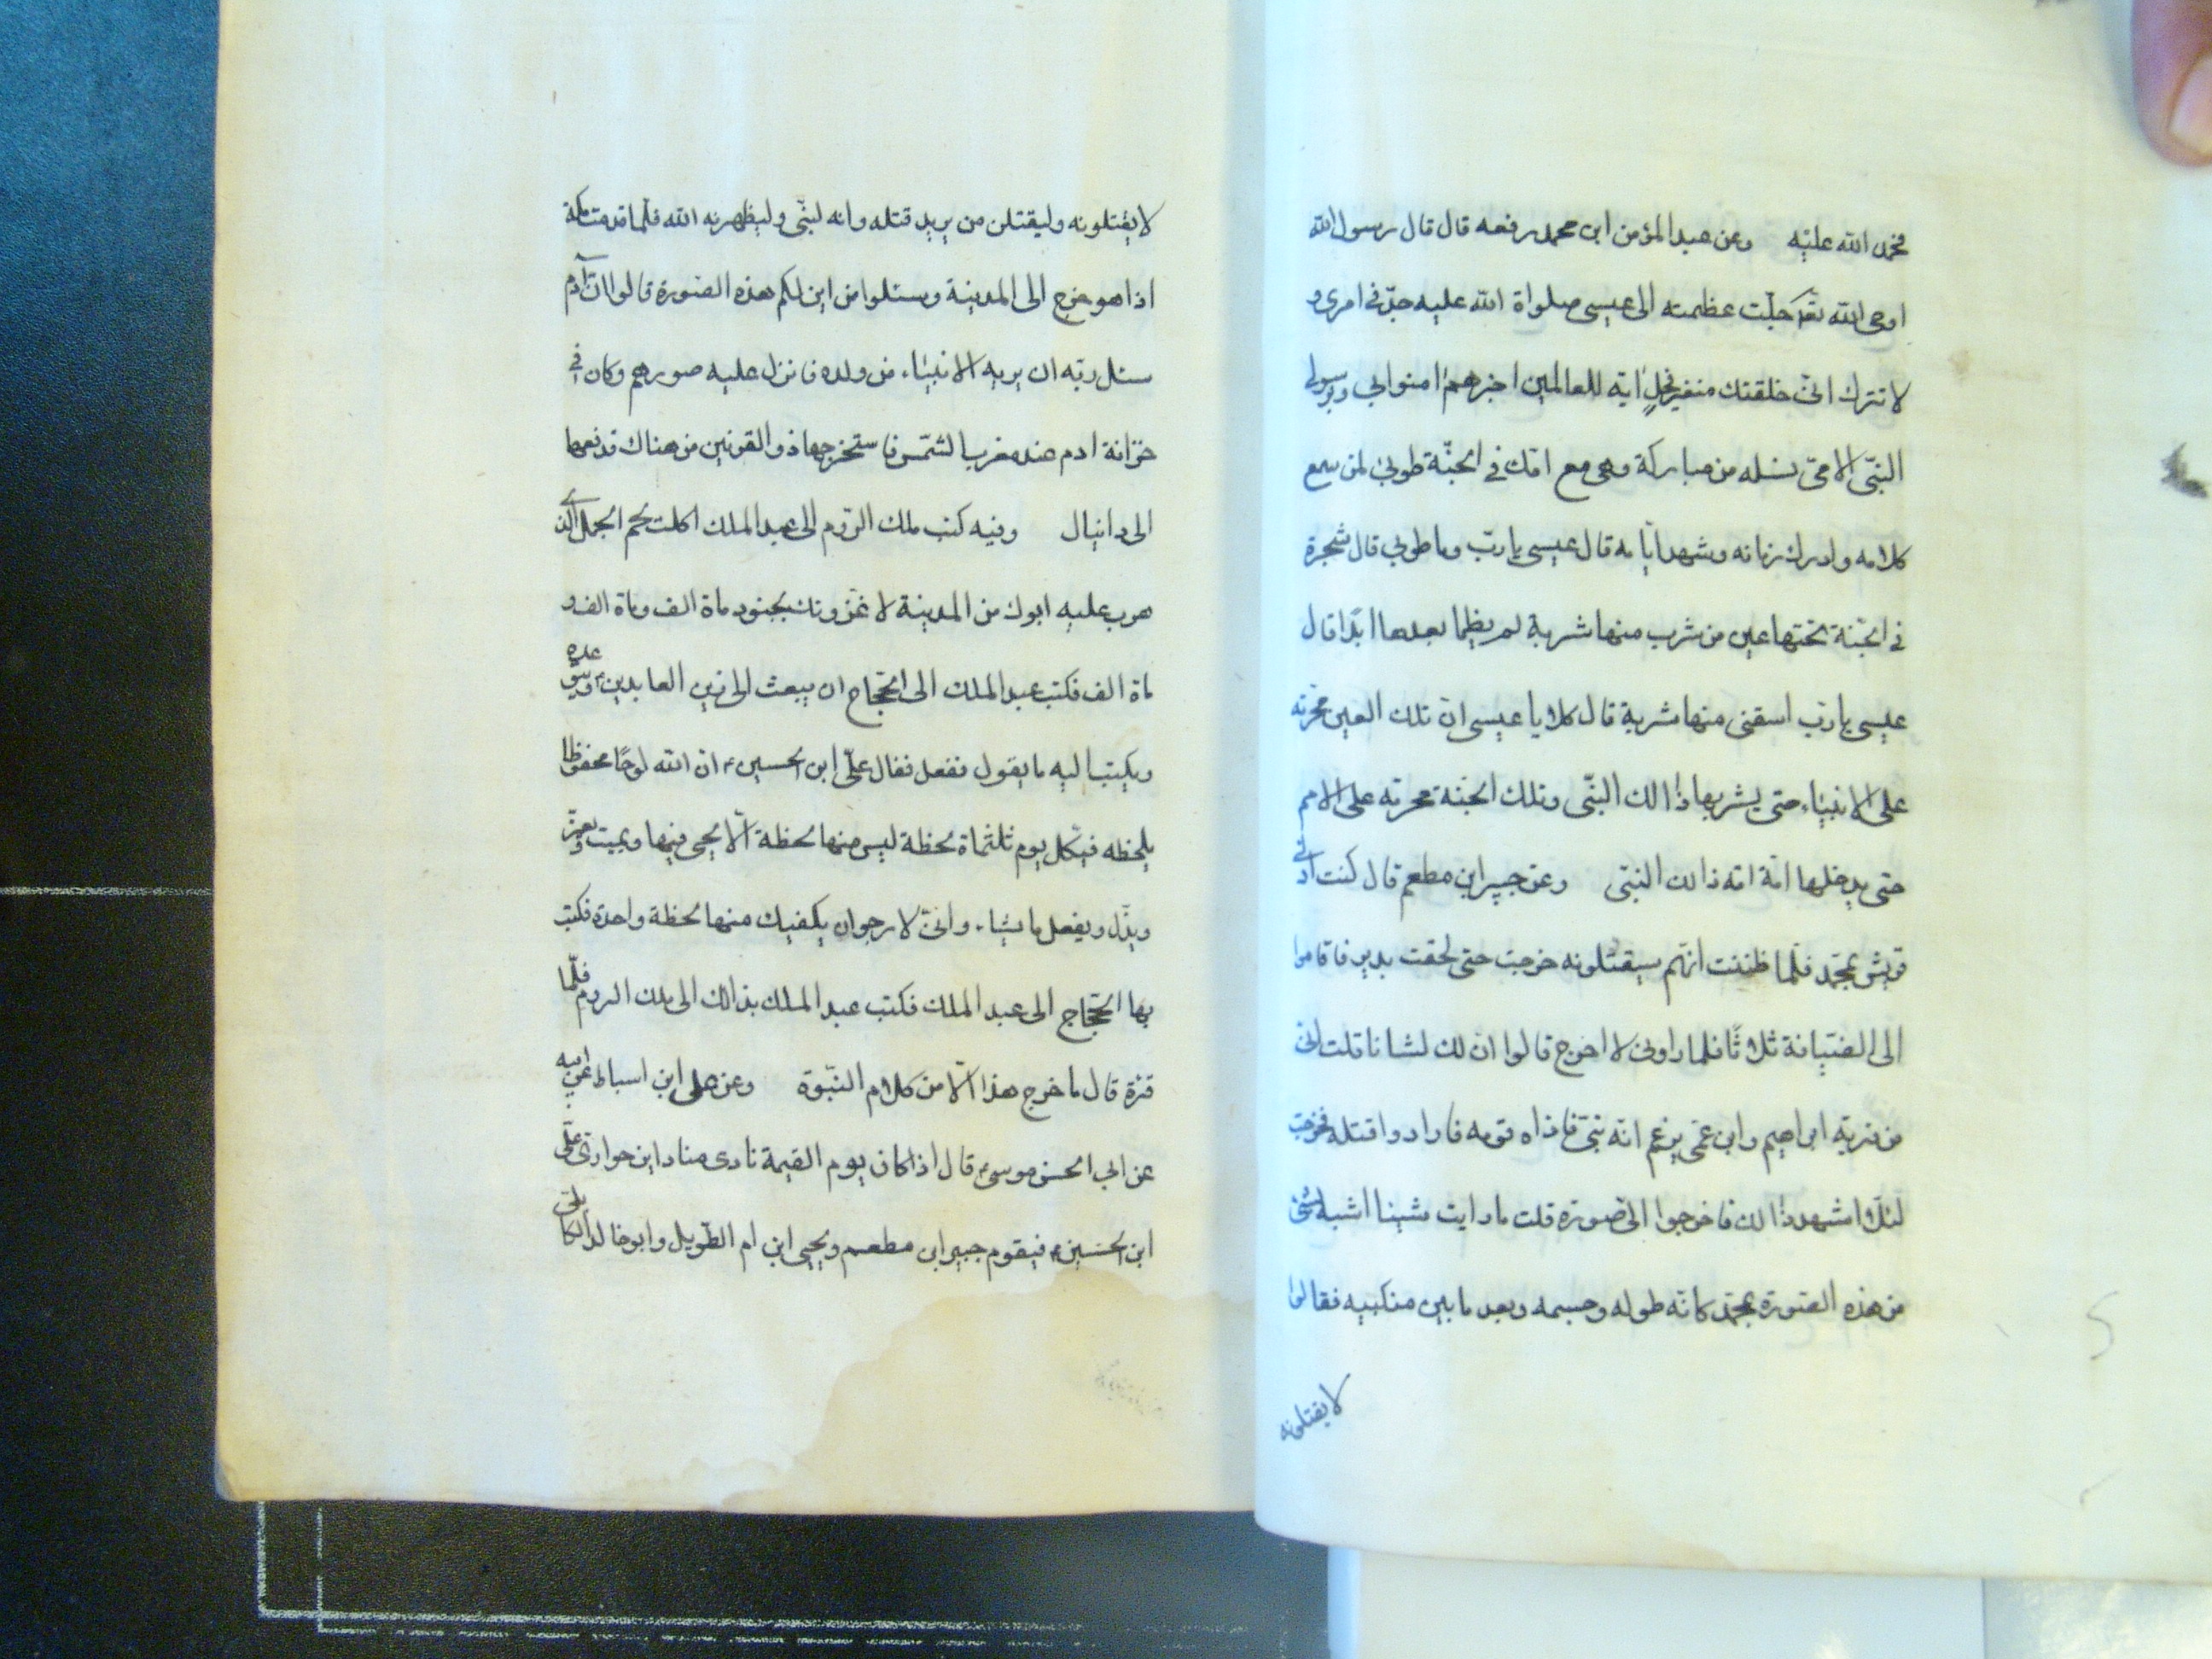 فحمد الله عليه وعن عبد المؤمن ابن محمد رفعه قال قال رسول الله
اوحى الله تع جلّت عظمته الى عيسى صلواة الله عليه جدّ في امرى و
لا تترك انى خلقتك منغير فحلٍ اية للعالمين اخبرهم امنوا بي وبرسولى
النبّى الامىّ نسله من مباركة وهى مع امّك في الجنّة طوبى لمن سمع
كلامه وادرك زمانه وشهد ايّامه قال عيسى يا ربّ وما طوبى قال شجرة
في الجنّة تحتها عين من شرب منها شربة لم يظما بعدها ابدًا قال
عيسى يا ربّ اسقنى منها شربة قال كلا يا عيسى انّ تلك العين محرمة
على الانبياء حتى يشربها ذالك النبّى وتلك الجنة محرمة على الامم
حتى يدخلها امّة امّه ذالك النبى وعن جبير ابن مطعم قال كنت آذى
قريش بمحمّد فلما ظننت انهم سيقتلونه خرجت حتى لحقت بدير فاقاموا
الى الضيّافة ثلاثًا فلما راونى لا اخرج قالوا ان لك لشانا قلت انى
من قرية ابراهيم وابن عمّى يزعم انّه نبىّ فاذاه قومه فارادوا قتله فخرجت
لئلا اشهد ذالك فاخرجوا الىّ صورة قلت ما رايت شيئا اشبه بشئ
من هذه الصّورة بمحمّد كانّه طوله وجسمه وبعد ما بين منكبيه فقالوا
لا يقتلونه
لا يقتلونه وليقتلن من يريد قتله وانه لنبّى وليظهرنه الله فلّما قدمت مكة
اذا هو خرج الى المدينة وسئلوا من اين لكم هذه الصّورة قالوا ان آدم
سئل ربّه ان يريه الانبياء من ولده فانزل عليه صورهم وكان في
خزانة ادم عند مغرب الشّمس فاستخرجها ذو القرنين من هناك فدفعها
الى دانيال وفيه كتب ملك الرّوم الى عبد الملك اكلت لحم الجمل الذى
هرب عليه ابوك من المدينة لاغزونك بجنود ماة الف وماة الف و
ماة الف فكتب عبد الملك الى الحجّاج ان يبعث الى زين العابدين ع ويتوعده
ويكتب اليه ما يقول ففعل فقال علىّ ابن الحسين ع ان الله لوحًا محفوظا
يلحظه فيكّل يوم ثلثماة لحظة ليس منها لحظة الّا يحيى فيها ويميت ويعزّ
ويذّل ويفعل ما يشاء وانى لارجو ان يكفيك منها لحظة واحدة فكتب
بها الحجّاج الى عبد الملك فكتب عبد الملك بذالك الى ملك الروم فلّما
قرئه قال ما خرج هذا الّا من كلام النبّوة وعن على ابن اسباط عن ابيه
عن ابي الحسن موسى ع قال اذا كان يوم القيمة نادى مناد اين حوارىّ علّى
ابن الحسين ع فيقوم جبير ابن مطعم ويحيى ابن ام الطّويل وابو خالد الكابلى